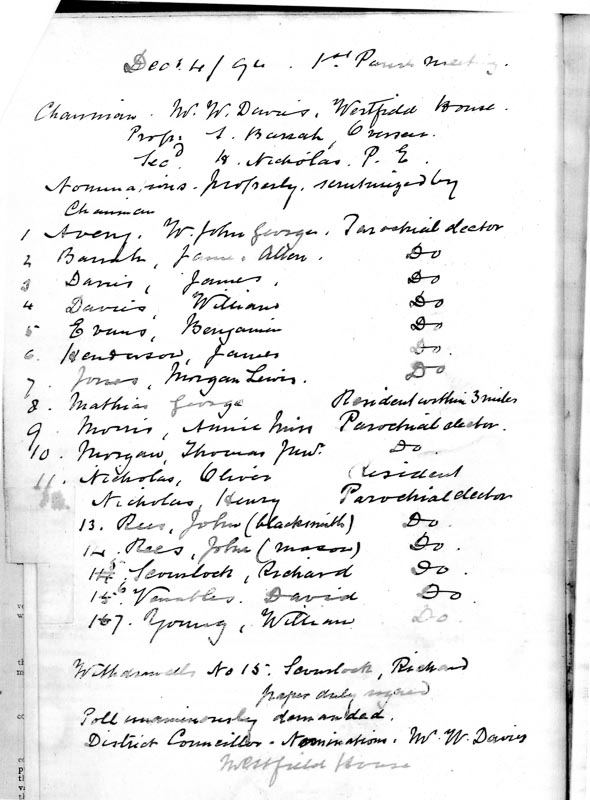 Decr 4/94. 1st Parish meeting.
Chairman. W. W. Davies, Westfield House.
Prop. S. Barrah, Overseer.
Secd H. Nicholas. P. E.
Nominations properly scrutinized by
Chairman
1 Avery, W. John George. Parochial elector
2 Barrah, James Allen. Do
3 Davis, James. Do
4 Davies, William Do
5 Evans, Benjamin Do
6. Henderson, James Do.
7. Jones, Morgan Lewis. Do
8. Mathias George Resident within 3 miles
9 Morris, Annie Miss Parochial elector.
10. Morgan, Thomas Junr. Do.
11. Nicholas, Oliver Resident
Nicholas, Henry Parochial elector
13. Rees, John (blacksmith) Do.
14. Rees, John (mason) Do.
15, Scourlock, Richard Do.
16 Venables. David Do.
17. Young, William Do.
Withdrawals No 15. Scourlock, Richard
paper duly signed
Poll unanimously demanded.
District Councillor - Nominations. W. W. Davies
Westfield House